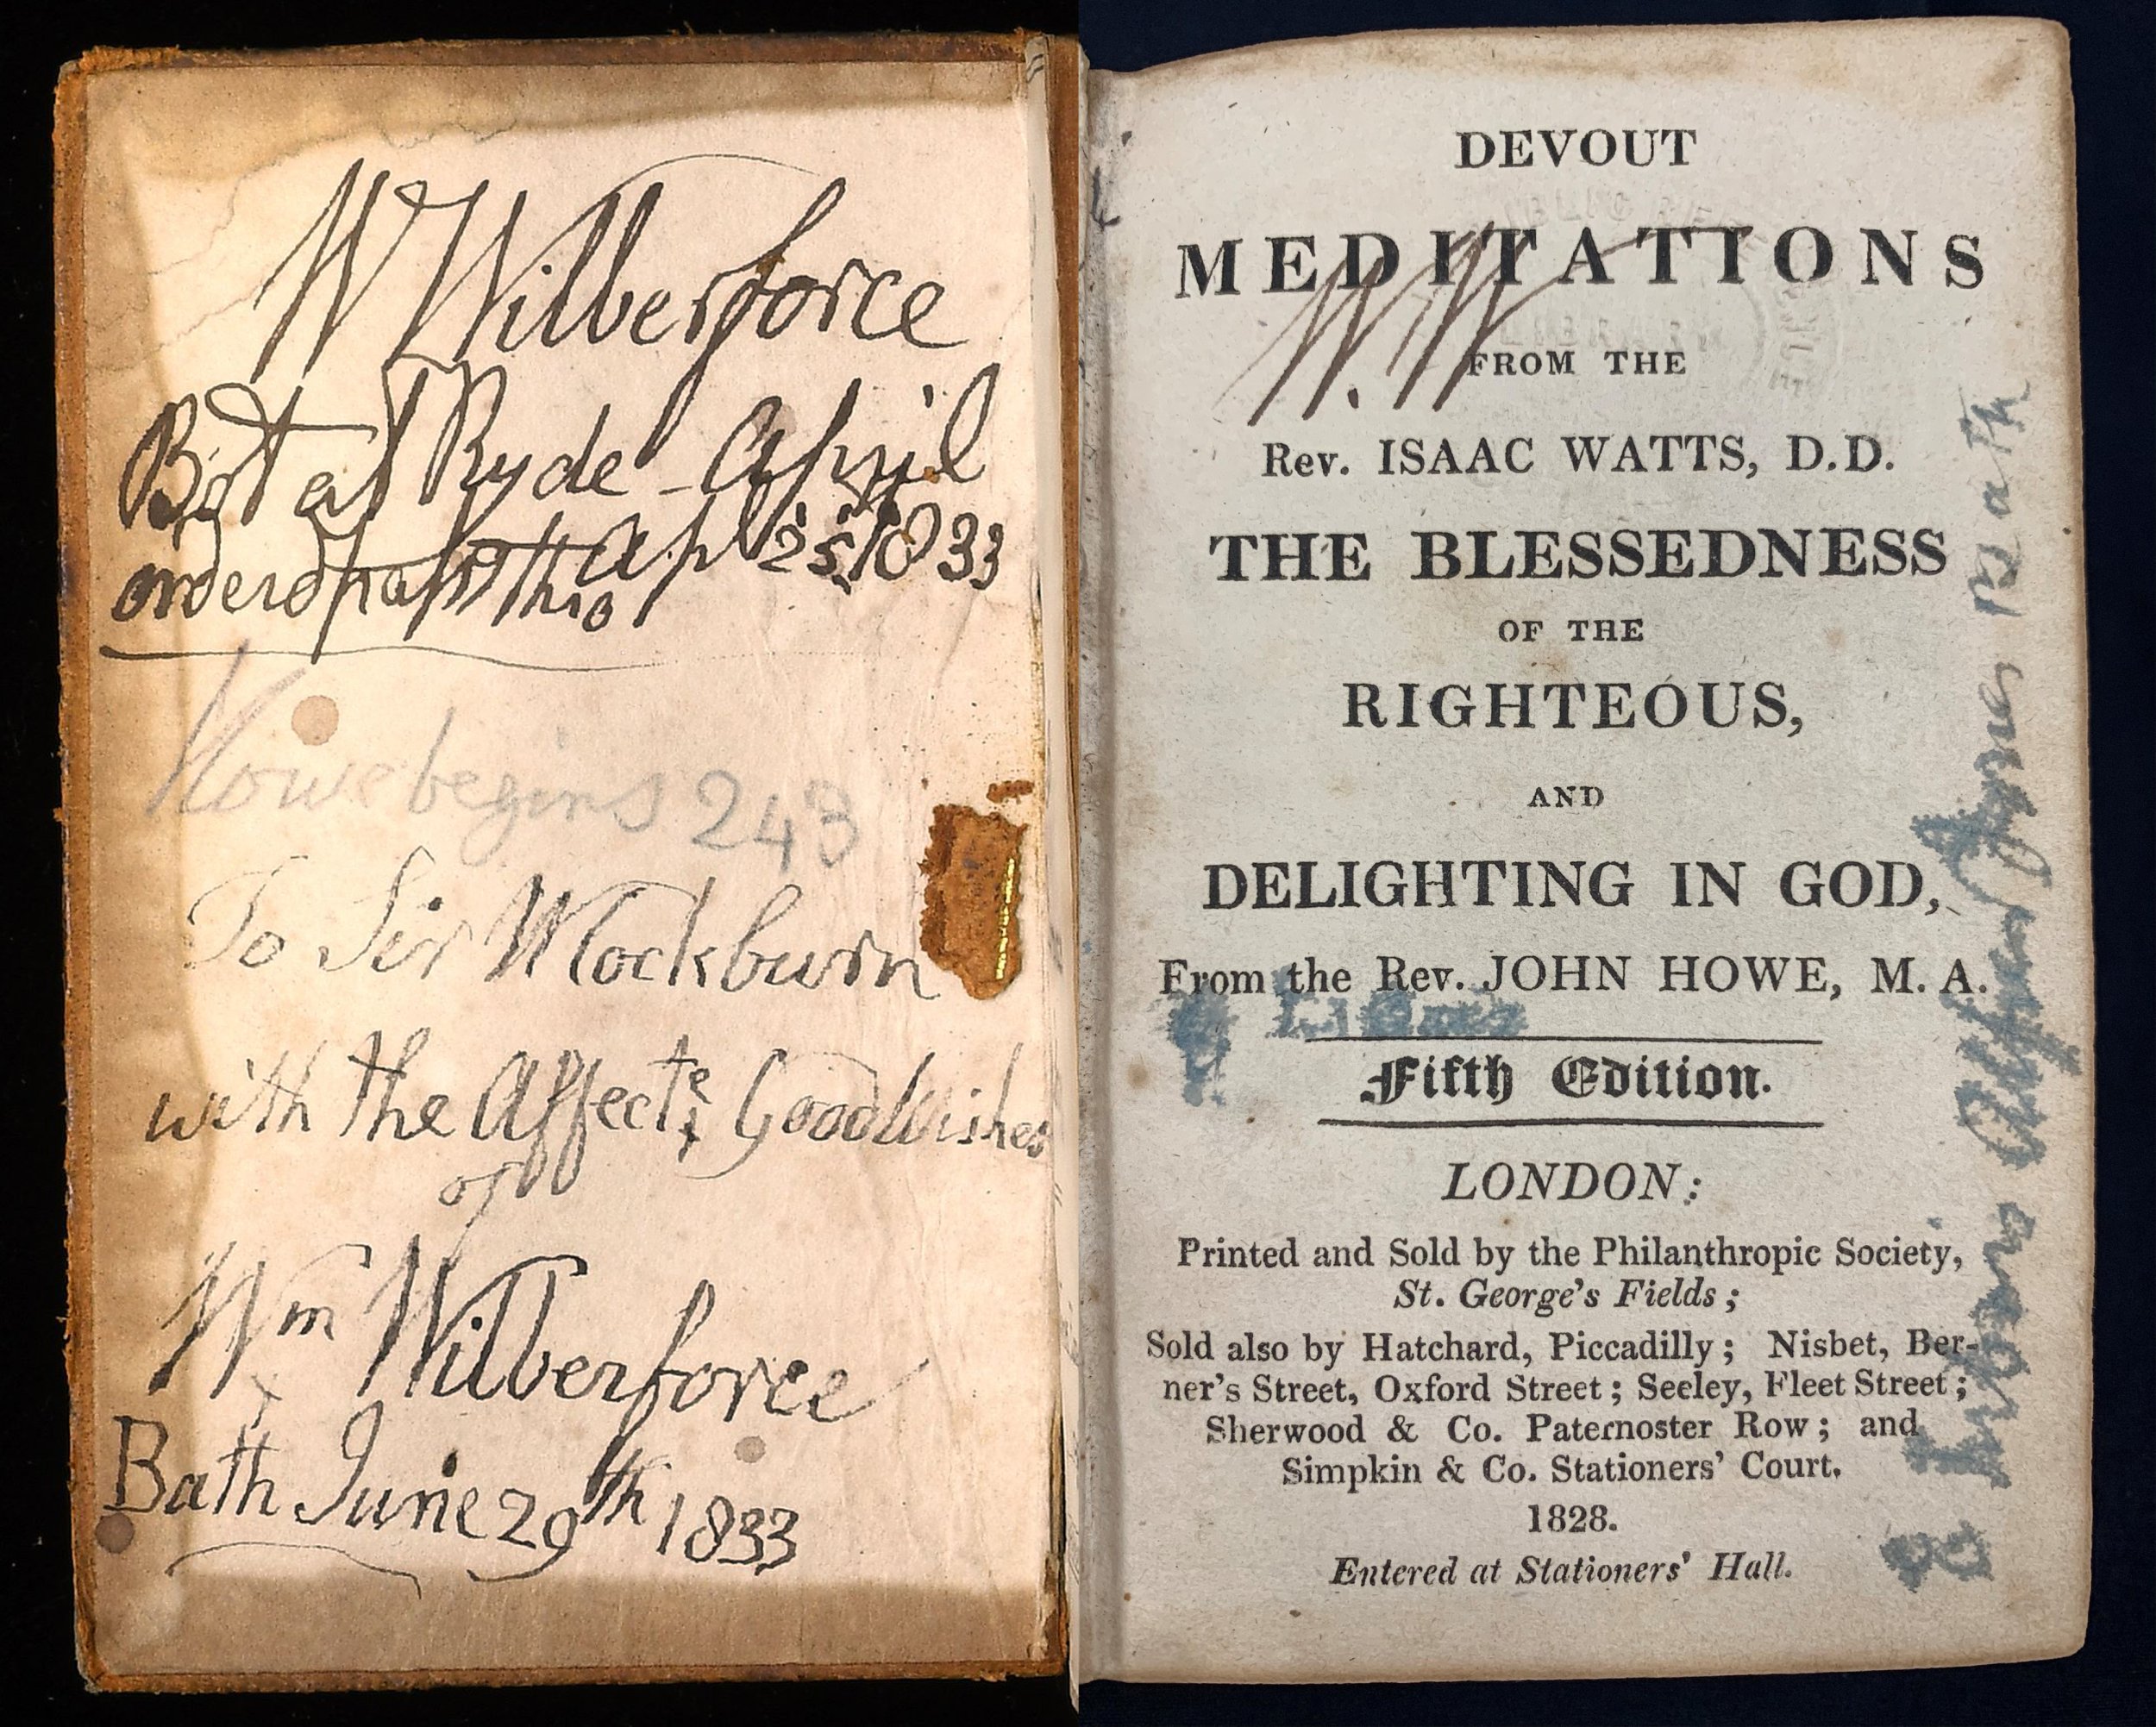 W Wilberforce
Bot at Ryde - April
orderd this Apl 25. 1833
Howe begins 243
To Sir W Cockburn
with the Affecte Good Wishes
of
Wm Wilberforce
Bath June 29th 1833
DEVOUT
MEDITATIONS
W. W
FROM THE
Rev. ISAAC WATTS, D.D.
THE BLESSEDNESS
OF THE
RIGHTEOUS,
AND
DELIGHTING IN GOD,
From the Rev. JOHN HOWE, M. A.
Fifth Edition.
LONDON:
Printed and Sold by the Philanthropic Society,
St. George's Fields;
Sold also by Hatchard, Piccadilly; Nisbet, Ber-
ner's Street, Oxford Street; Seeley, Fleet Street;
Sherwood & Co. Paternoster Row; and
Simpkin & Co. Stationers' Court.
1828.
Entered at Stationers' Hall.
Bath